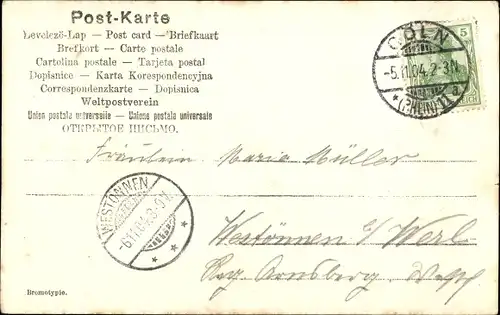 Post-Karte
Levelező-Lap — Post card — Briefkaart
Brefkort — Carte postale
Cartolina postale — Tarjeta postal
Dopisnice — Karta Korespondencyjna
Correspondenzkarte — Dopisnica
Weltpostverein
Union postale universelle — Unione postale universale
ОТКРЫТОЕ ПИСЬМО.
CÖLN
5
-5.11.04.2-3N.
* (RHEIN) 1 a
REICH
Fräulein Maria Müller
WESTÖNNEN
6.11.04.8-9V.
* * *
Westönnen b/ Werl
Reg. Arnsberg. Westf.
Bromotypie.